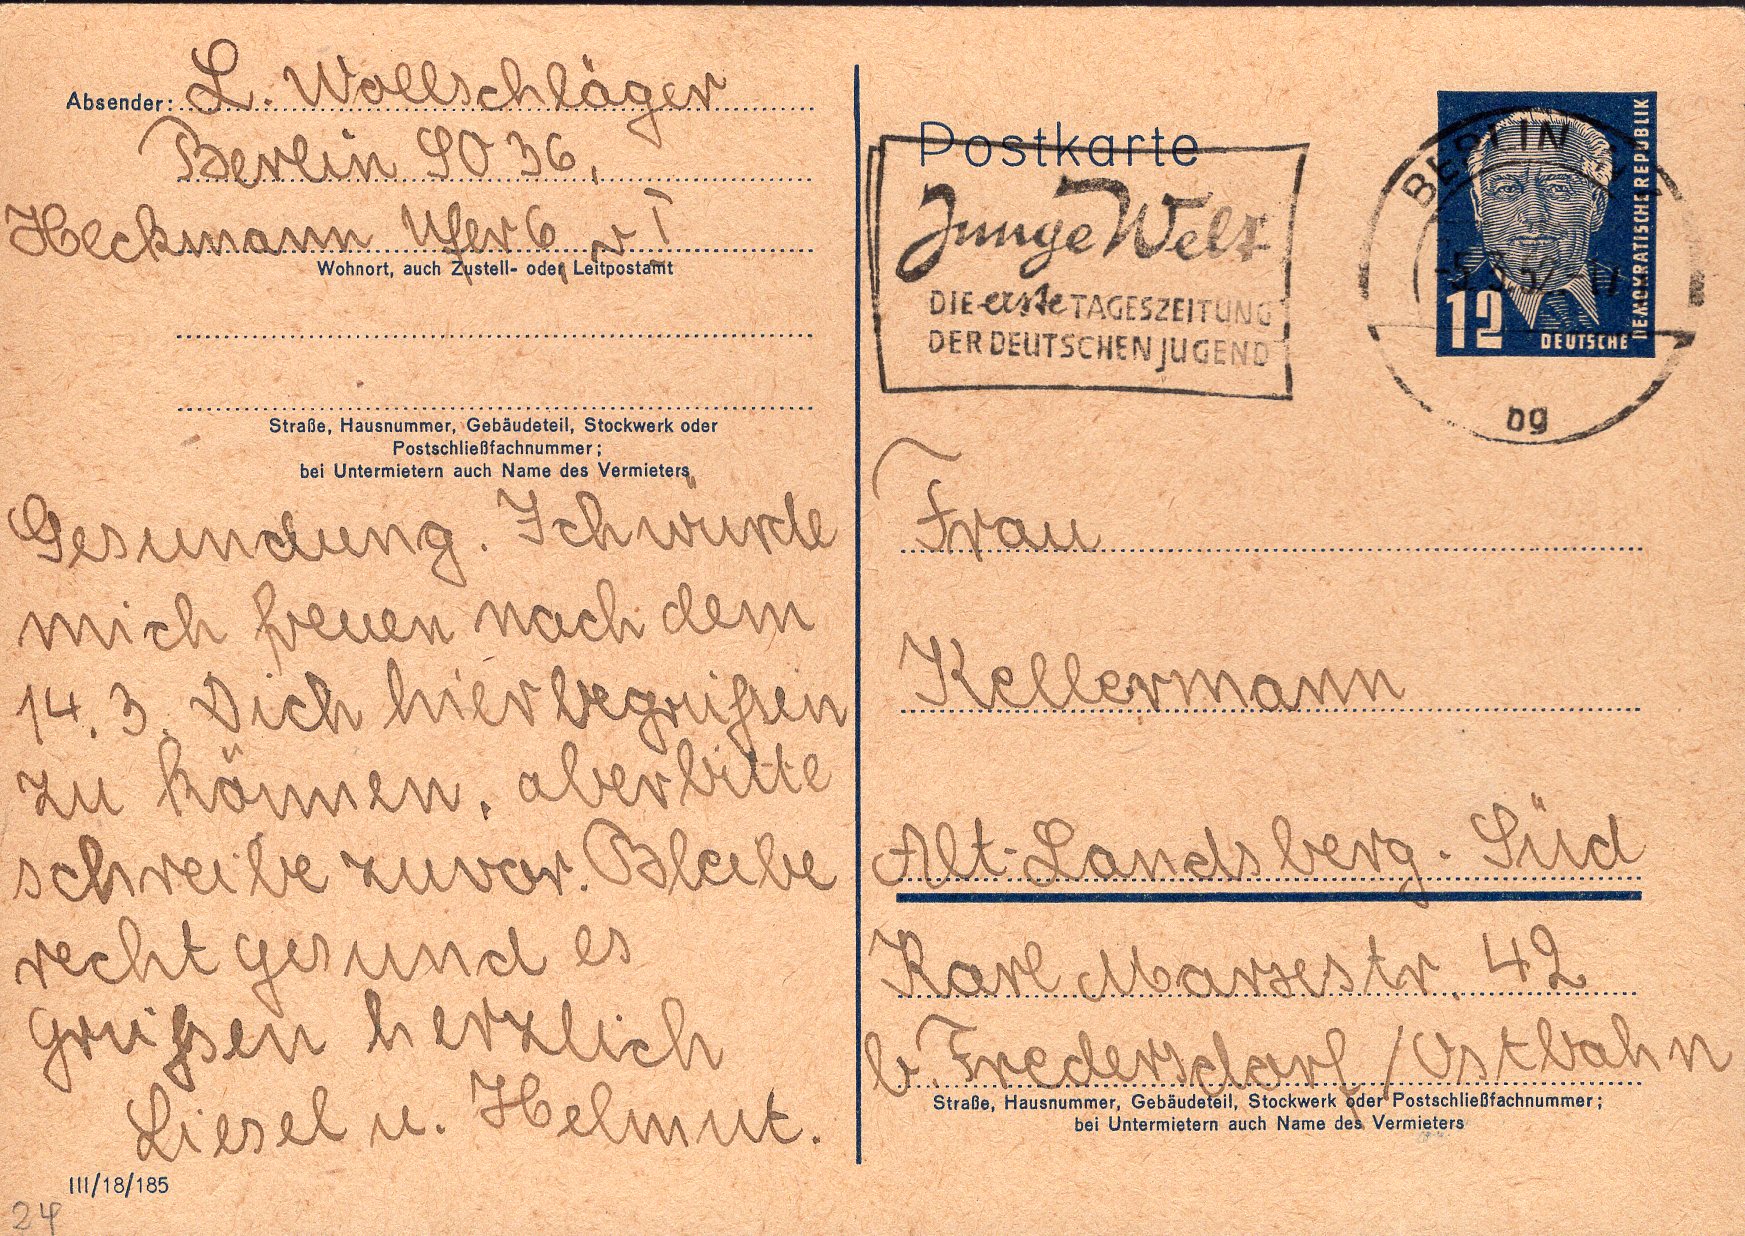 Absender: L. Wollschläger
Berlin SO 36,
Heckmann Ufer 6, v I
Wohnort, auch Zustell- oder Leitpostamt
Straße, Hausnummer, Gebäudeteil, Stockwerk oder
Postschließfachnummer;
bei Untermietern auch Name des Vermieters
Gesundung. Ich würde
mich freuen nach dem
14. 3. Dich hier begrüßen
zu können, aber bitte
schreibe zuvor. Bleibe
recht gesund es
grüßen herzlich
Liesel u. Helmut.
III/18/185
24
Postkarte
Junge Welt
DIE erste TAGESZEITUNG
DER DEUTSCHEN JUGEND
BERLIN
bg
12
DEUTSCHE
DEMOKRATISCHE REPUBLIK
Frau
Kellermann
Alt-Landsberg. Süd
Karl Marxestr. 42
b. Fredersdorf / Ostbahn
Straße, Hausnummer, Gebäudeteil, Stockwerk oder Postschließfachnummer;
bei Untermietern auch Name des Vermieters